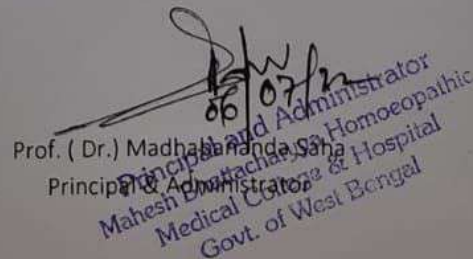 06/07/22
Prof. ( Dr.) Madhabananda Saha
Principal & Administrator
Principal and Administrator
Mahesh Bhattacharyya Homoeopathic
Medical College & Hospital
Govt. of West Bengal